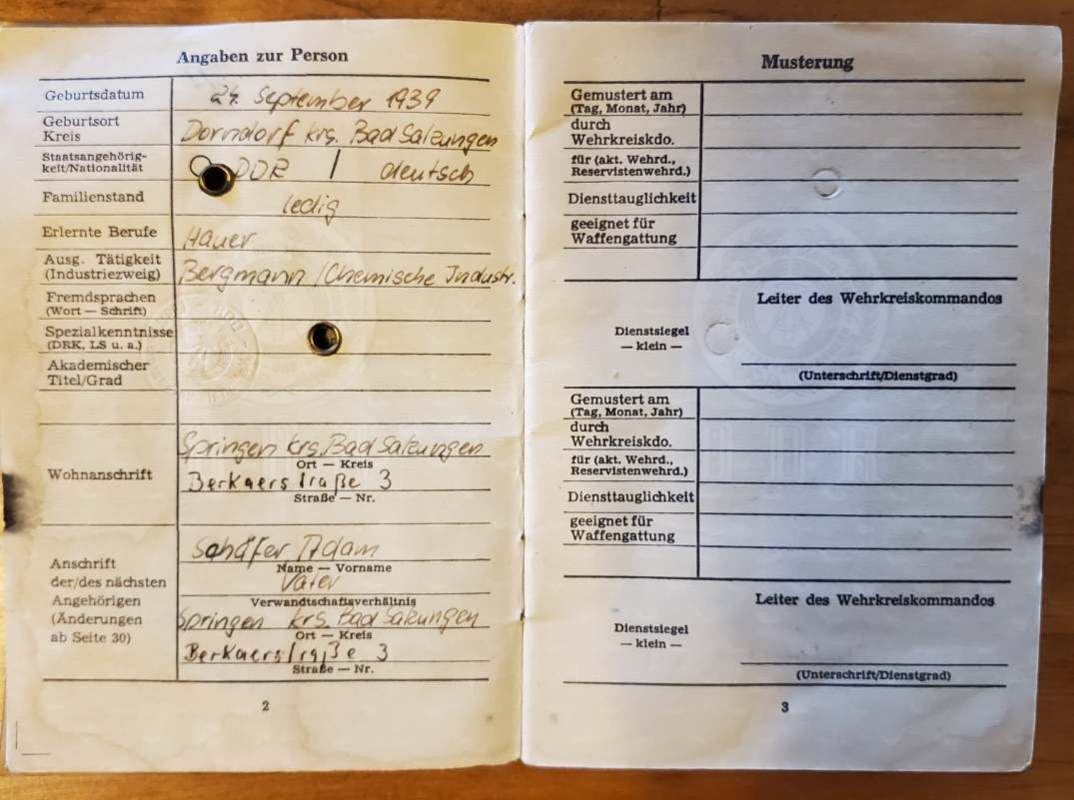 Angaben zur Person
Geburtsdatum 24. September 1939
Geburtsort
Kreis Dorndorf krs. Bad Salzungen
Staatsangehörig-
keit/Nationalität DDR / deutsch
Familienstand ledig
Erlernte Berufe Hauer
Ausg. Tätigkeit
(Industriezweig) Bergmann / Chemische Industr.
Fremdsprachen
(Wort — Schrift)
Spezialkenntnisse
(DRK, LS u. a.)
Akademischer
Titel/Grad
Springen krs. Bad Salzungen
Ort — Kreis
Wohnanschrift
Berkaerstraße 3
Straße — Nr.
Schäfer Adam
Name — Vorname
Anschrift
der/des nächsten
Angehörigen
(Änderungen
ab Seite 30)
Vater
Verwandtschaftsverhältnis
Springen krs. Bad Salzungen
Ort — Kreis
Berkaerstraße 3
Straße — Nr.
2
Musterung
Gemustert am
(Tag, Monat, Jahr)
durch
Wehrkreiskdo.
für (akt. Wehrd.,
Reservistenwehrd.)
Diensttauglichkeit
geeignet für
Waffengattung
Leiter des Wehrkreiskommandos
Dienstsiegel
— klein —
(Unterschrift/Dienstgrad)
Gemustert am
(Tag, Monat, Jahr)
durch
Wehrkreiskdo.
für (akt. Wehrd.,
Reservistenwehrd.)
Diensttauglichkeit
geeignet für
Waffengattung
Leiter des Wehrkreiskommandos
Dienstsiegel
— klein —
(Unterschrift/Dienstgrad)
3